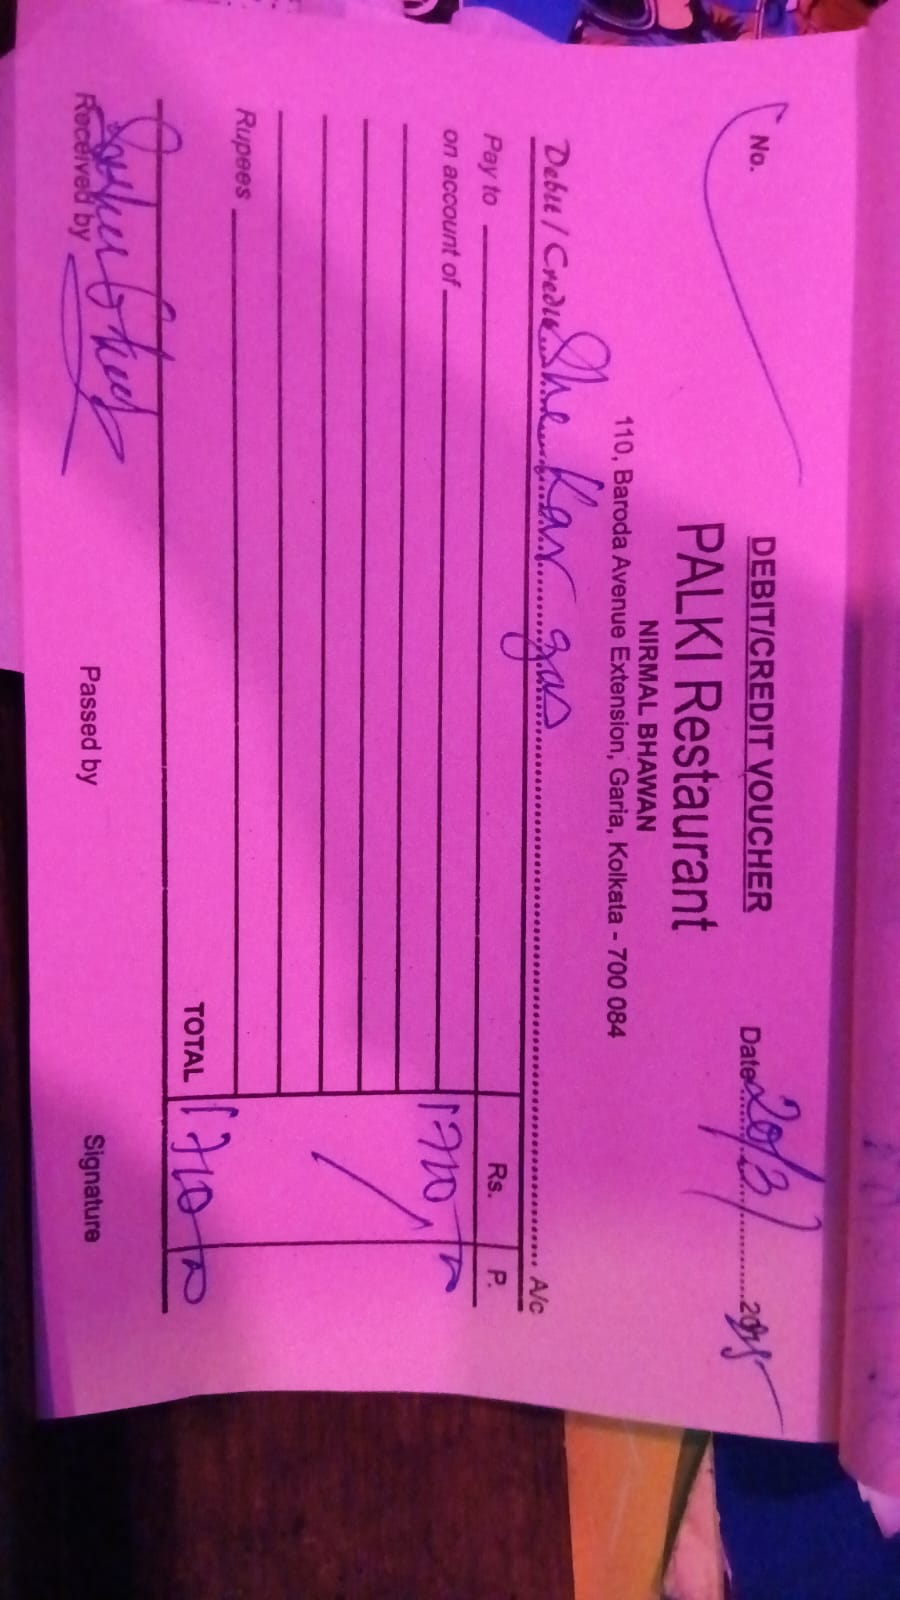 No.
DEBIT/CREDIT VOUCHER
PALKI Restaurant
NIRMAL BHAWAN
110, Baroda Avenue Extension, Garia, Kolkata - 700 084
Date 20/3/ 2025
Debit / Credit Shekar gas A/c
Pay to Rs. P.
on account of 1710
Rupees
TOTAL 1710
Received by Passed by Signature